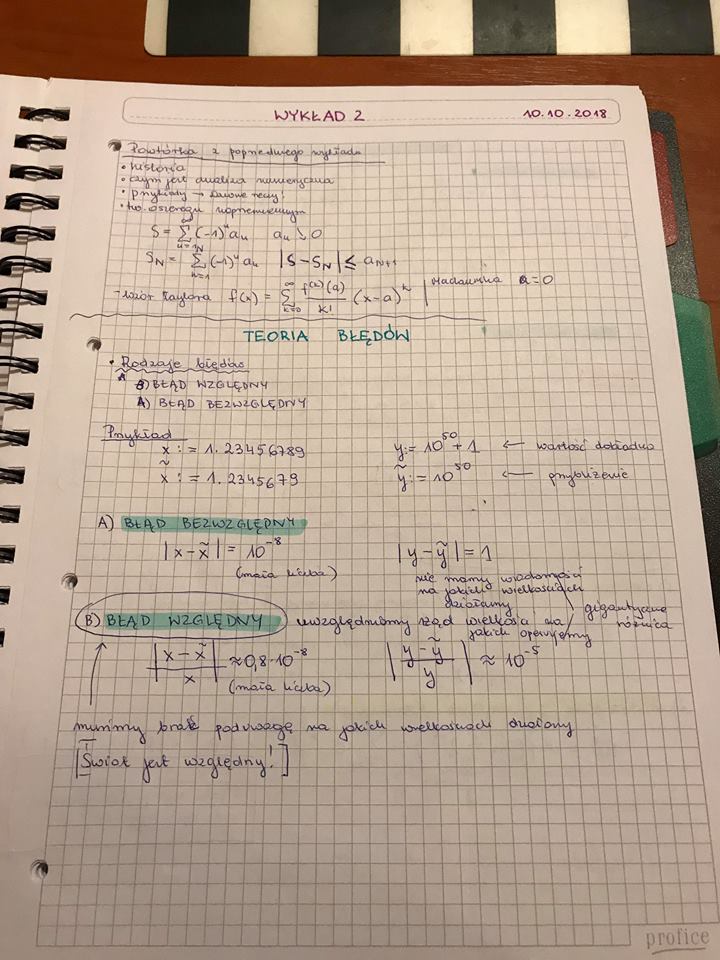 WYKŁAD 2 10.10.2018
Powtórka z poprzedniego wykładu
• historia
• czym jest analiza numeryczna
• przykłady → dziwne rzeczy!
• tw. o szeregu naprzemiennym
S = ∑_{n=1}^{∞} (-1)^n a_n a_n ↘ 0
S_N = ∑_{n=1}^{N} (-1)^n a_n |S - S_N| ≤ a_{N+1}
- wzór Taylora f(x) = ∑_{k=0}^{∞} f^{(k)}(a)/k! (x-a)^k | Maclaurina a=0
TEORIA BŁĘDÓW
• Rodzaje błędów
B) BŁĄD WZGLĘDNY
A) BŁĄD BEZWZGLĘDNY
Przykład
x := 1.23456789 y := 10^50 + 1 ← wartość dokładna
x̃ := 1.2345679 ỹ := 10^50 ← przybliżenie
A) BŁĄD BEZWZGLĘDNY
|x - x̃| = 10^-8 |y - ỹ| = 1
(mała liczba) nie mamy wiadomości
na jakich wielkościach
działamy
gigantyczna
różnica
B) BŁĄD WZGLĘDNY uwzględniamy rząd wielkości na
jakich operujemy
|(x - x̃)/x| ≈ 0,8·10^-8 |(y - ỹ)/y| ≈ 10^-5
(mała liczba)
musimy brać pod uwagę na jakich wielkościach działamy
[Świat jest względny!]
profice